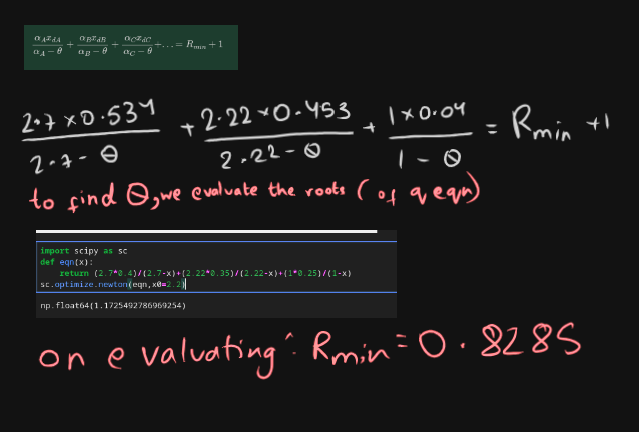 α_A x_dA / (α_A − θ) + α_B x_dB / (α_B − θ) + α_C x_dC / (α_C − θ) + ... = R_min + 1
2.7 × 0.534 / (2.7 - θ) + 2.22 × 0.453 / (2.22 - θ) + 1 × 0.04 / (1 - θ) = Rmin +1
to find θ, we evaluate the roots (of q eqn)
import scipy as sc
def eqn(x):
    return (2.7*0.4)/(2.7-x)+(2.22*0.35)/(2.22-x)+(1*0.25)/(1-x)
sc.optimize.newton(eqn,x0=2.2)
np.float64(1.1725492786969254)
on evaluating: Rmin = 0.8285